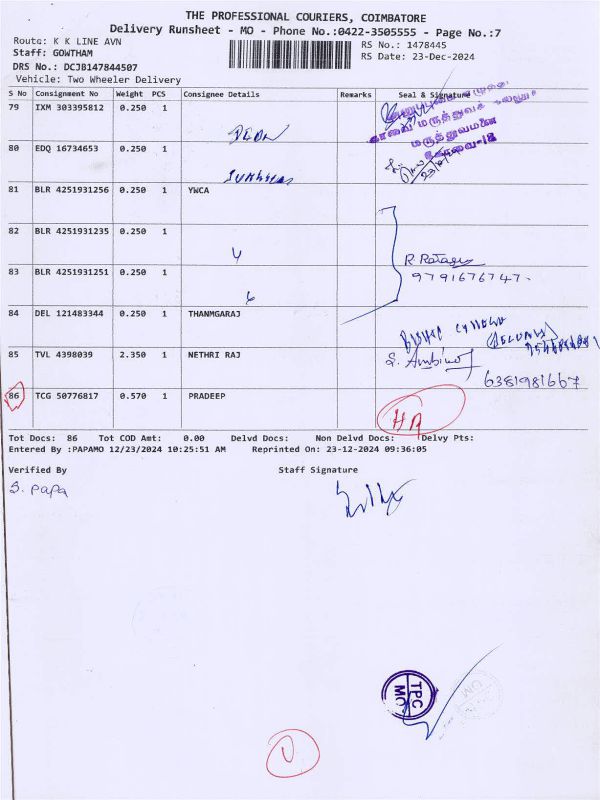 THE PROFESSIONAL COURIERS, COIMBATORE
Delivery Runsheet - MO - Phone No.:0422-3505555 - Page No.:7
Route: K K LINE AVN
RS No.: 1478445
Staff: GOWTHAM
RS Date: 23-Dec-2024
DRS No.: DCJB147844507
Vehicle: Two Wheeler Delivery
S No Consignment No Weight PCS Consignee Details Remarks Seal & Signature
79 IXM 303395812 0.250 1
மருத்துவமனை
80 EDQ 16734653 0.250 1
81 BLR 4251931256 0.250 1 YWCA
82 BLR 4251931235 0.250 1
83 BLR 4251931251 0.250 1
9791676747.
84 DEL 121483344 0.250 1 THANMGARAJ
85 TVL 4398039 2.350 1 NETHRI RAJ
6381981667
86 TCG 50776817 0.570 1 PRADEEP
Tot Docs: 86 Tot COD Amt: 0.00 Delvd Docs: Non Delvd Docs: Delvy Pts:
Entered By :PAPAMO 12/23/2024 10:25:51 AM Reprinted On: 23-12-2024 09:36:05
Verified By Staff Signature
S. Papa
TPC
MO